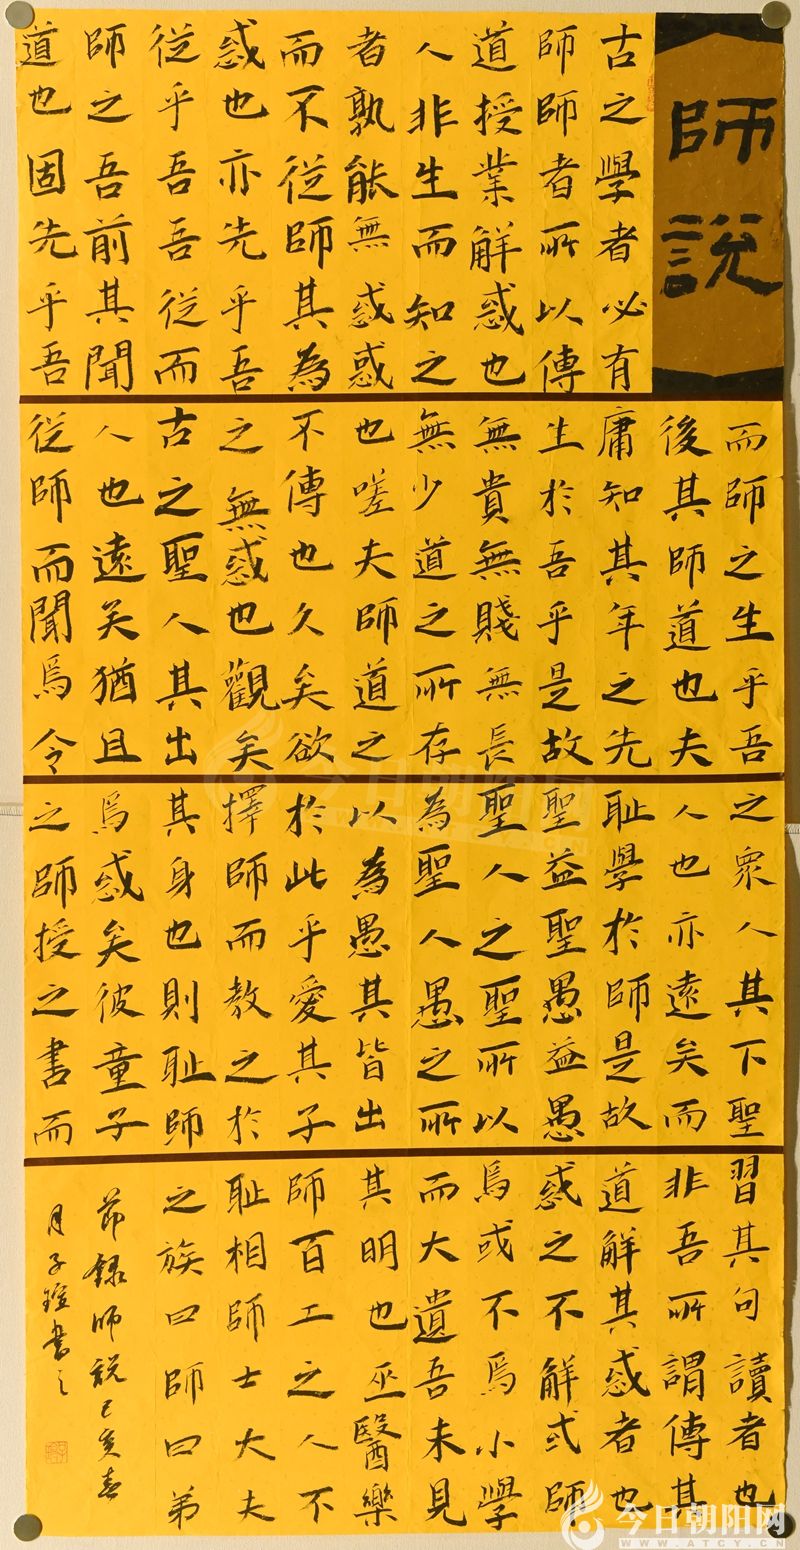 師說
古之學者必有
師師者所以傳
道授業解惑也
人非生而知之
者孰能無惑惑
而不從師其為
惑也亦先乎吾
從乎吾吾從而
師之吾前其聞
道也固先乎吾
而師之生乎吾
後其師道也夫
庸知其年之先
生於吾乎是故
無貴無賤無長
無少道之所存
也嗟夫師道之
不傳也久矣欲
之無惑也觀矣
古之聖人其出
人也遠矣猶且
從師而聞焉今
之眾人其下聖
人也亦遠矣而
耻學於師是故
聖益聖愚益愚
聖人之聖所以
為聖人愚之所
以為愚其皆出
於此乎愛其子
擇師而教之於
其身也則耻師
焉惑矣彼童子
之師授之書而
習其句讀者也
非吾所謂傳其
道解其惑者也
惑之不解或師
焉或不焉小學
而大遺吾未見
其明也巫醫樂
師百工之人不
耻相師士大夫
之族曰師曰弟
節錄師說己亥春
月子書之
今日朝阳网
WWW.ATCY.CN
今日朝阳网
WWW.ATCY.CN